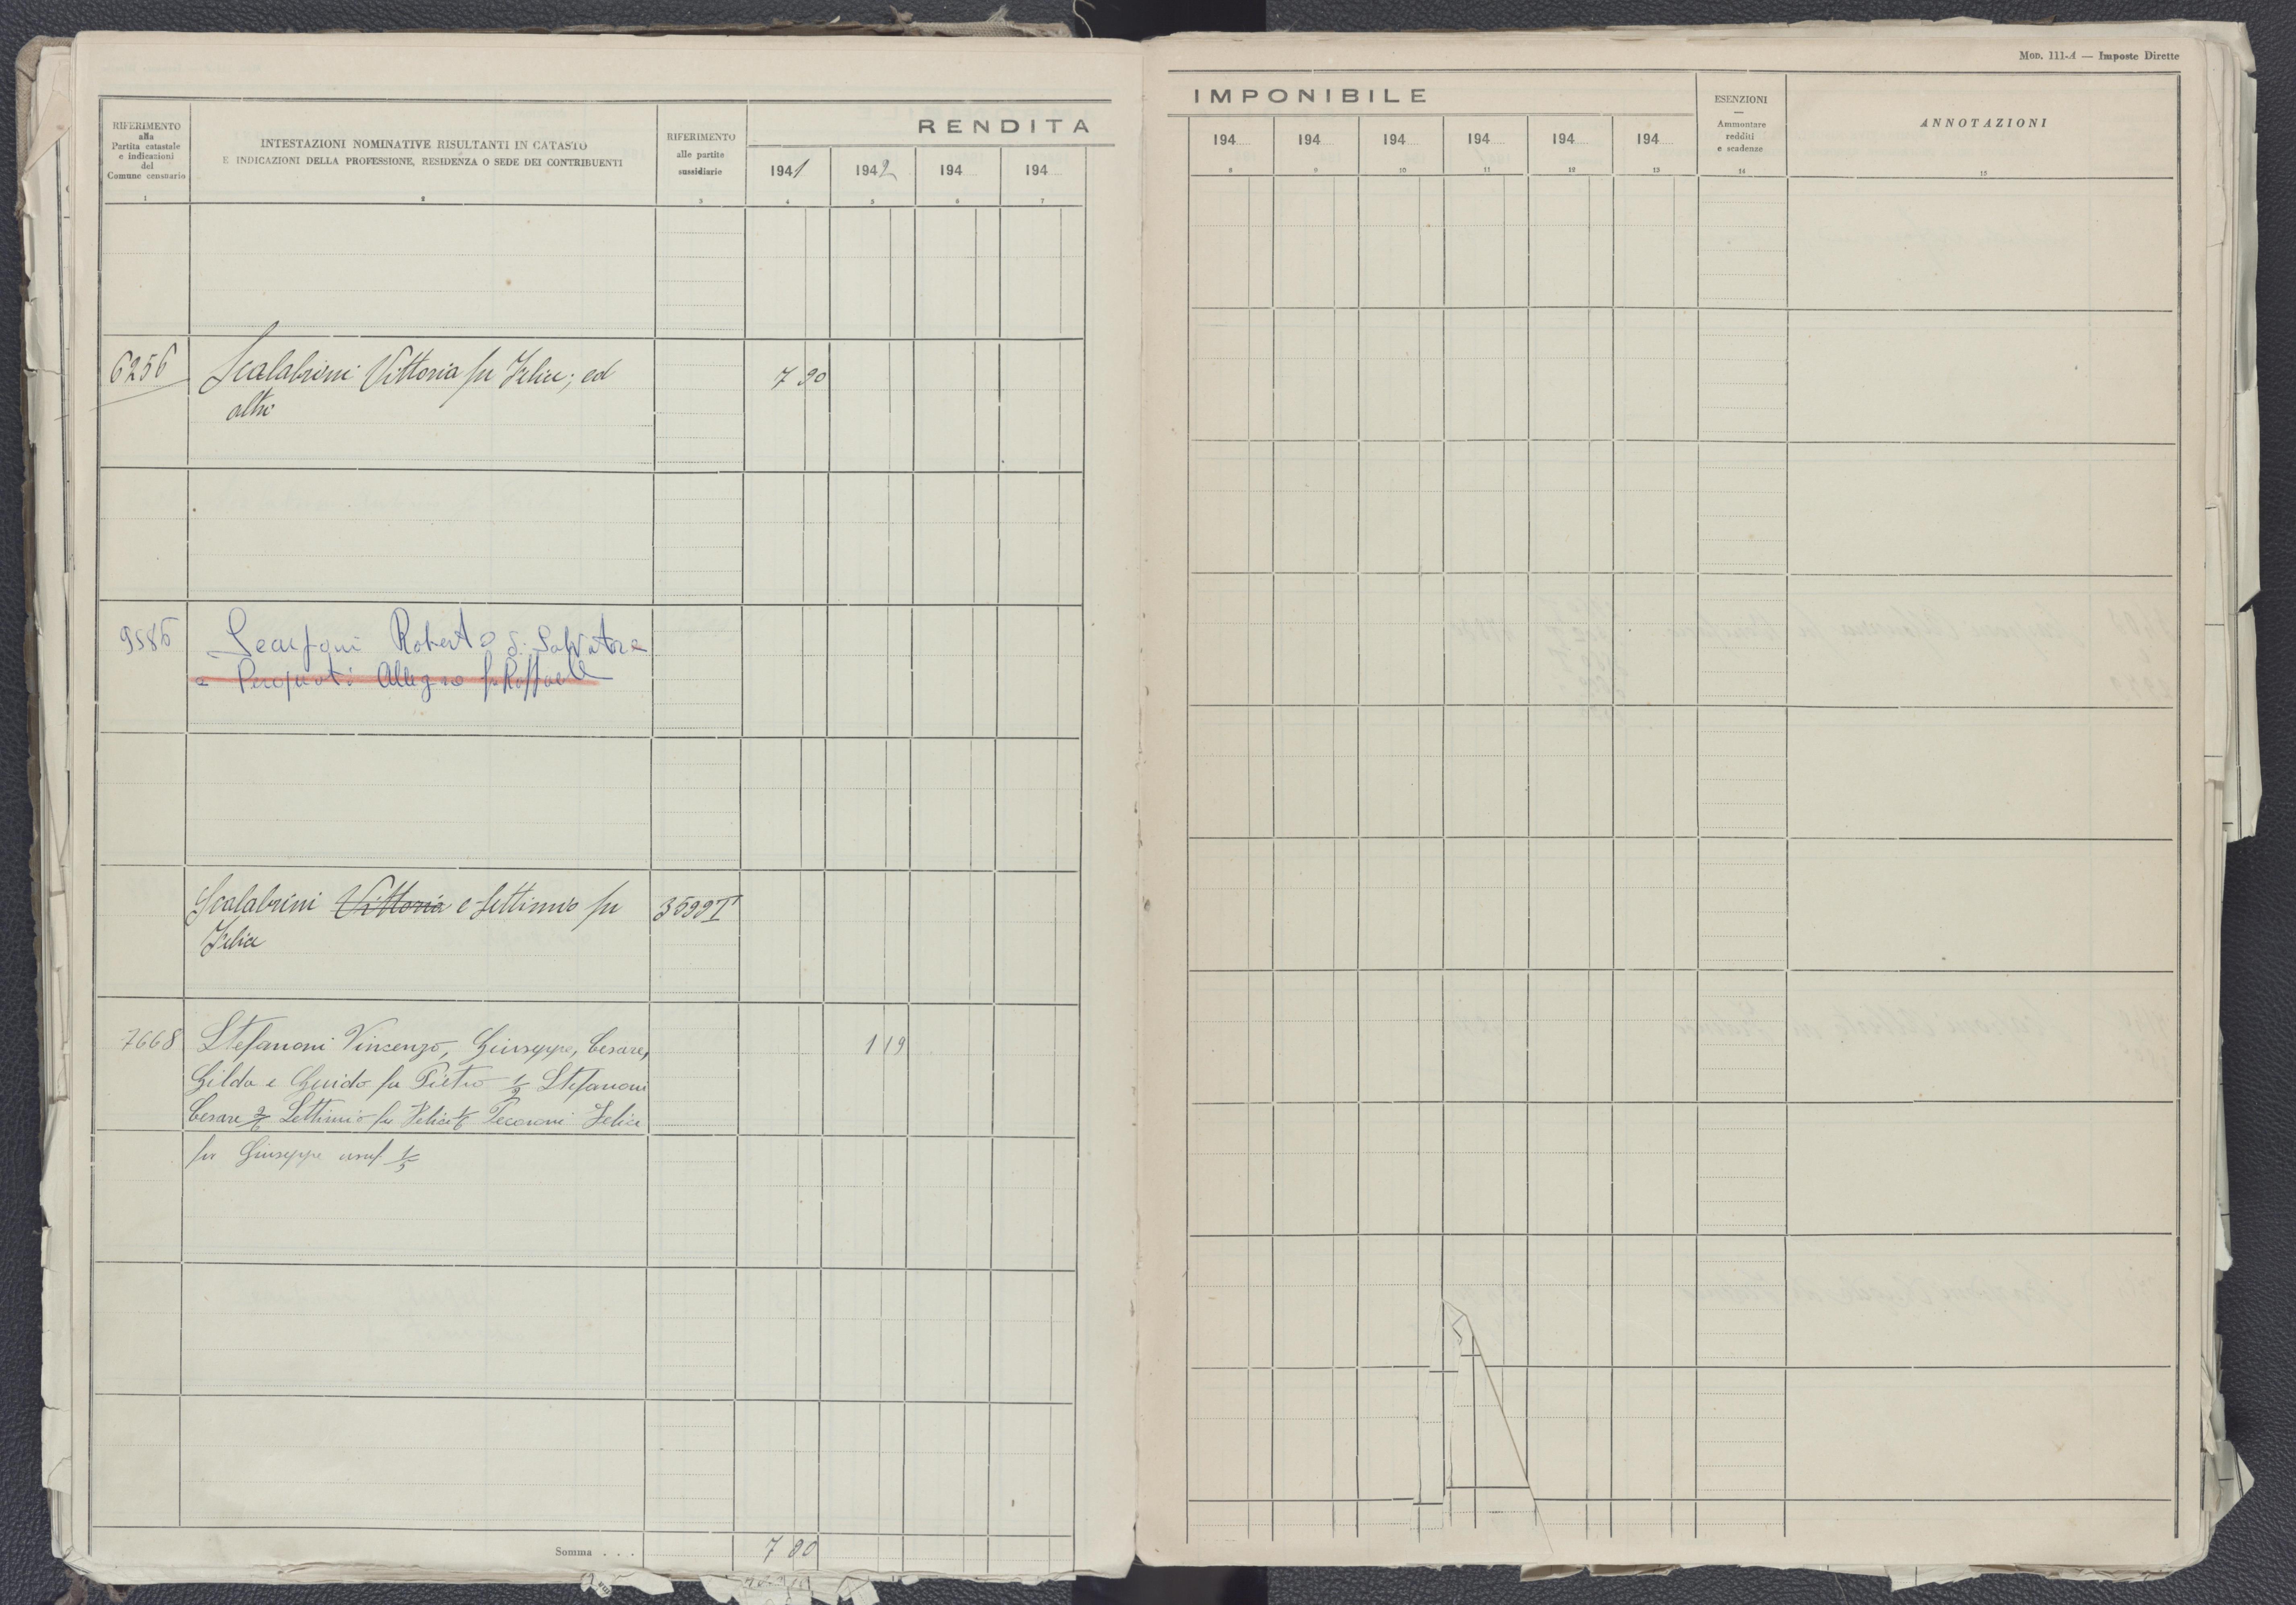 Mod. 111-A — Imposte Dirette
RIFERIMENTO
alla
Partita catastale
e indicazioni
del
Comune censuario
INTESTAZIONI NOMINATIVE RISULTANTI IN CATASTO
E INDICAZIONI DELLA PROFESSIONE, RESIDENZA O SEDE DEI CONTRIBUENTI
RIFERIMENTO
alle partite
sussidiarie
RENDITA
1941 1942 194 194
1 2 3 4 5 6 7
IMPONIBILE
194 194 194 194 194 194
8 9 10 11 12 13
ESENZIONI
—
Ammontare
redditi
e scadenze
14
ANNOTAZIONI
15
6256 Scalabrini Vittoria fu Felice; ed 7 90
altri
9586 Scarfoni Roberto di Salvatore
e Allegra fu Raffaele
Scalabrini Vittoria e Settimio fu 3699 I
Felice
7668 Stefanoni Vincenzo, Giuseppe, Cesare, 1 19
Gilda e Guido fu Pietro 1/2 Stefanoni
Cesare 2/6 Settimio fu Felice 1/6 Pecoroni Felice
fu Giuseppe usuf. 1/3
Somma . . . 7 90